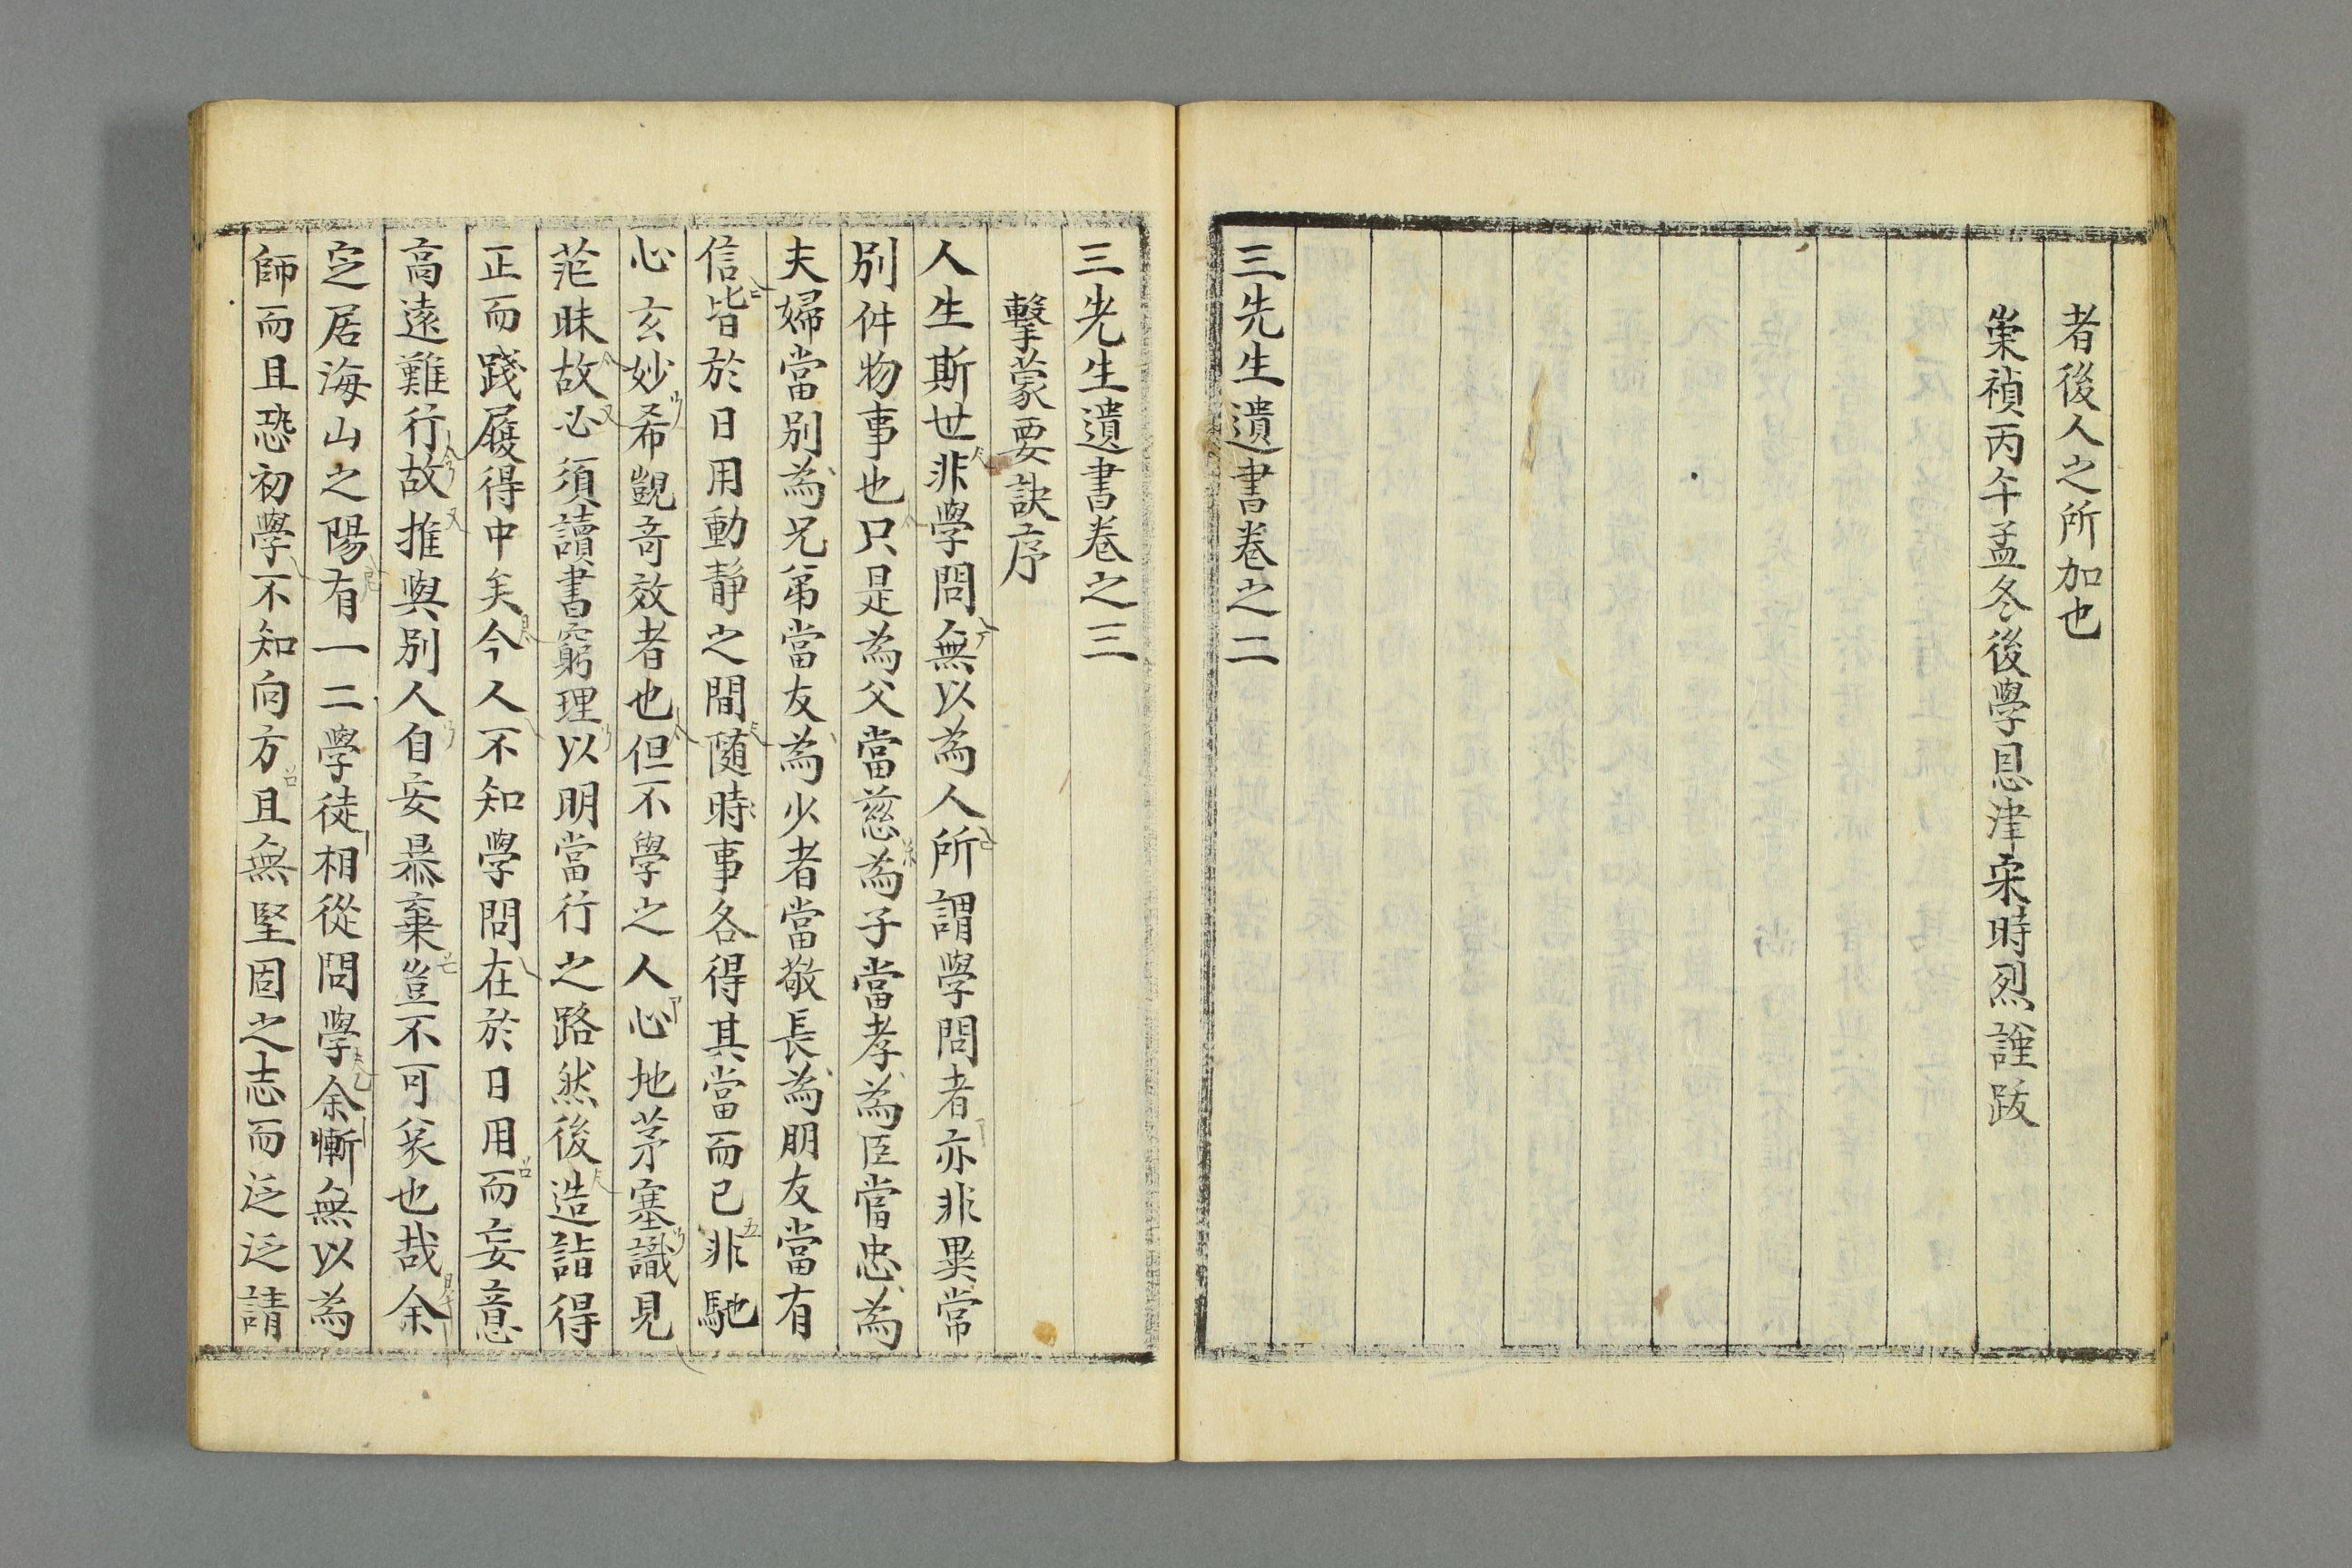 者後人之所加也
崇禎丙午孟冬後學恩津宋時烈謹跋
三先生遺書卷之二
三先生遺書卷之三
擊蒙要訣序
人生斯世非學問無以為人所謂學問者亦非異常
別件物事也只是為父當慈為子當孝為臣當忠為
夫婦當別為兄弟當友為少者當敬長為朋友當有
信皆於日用動靜之間隨時事各得其當而已非馳
心玄妙希覬奇效者也但不學之人心地茅塞識見
茫昧故必須讀書窮理以明當行之路然後造詣得
正而踐履得中矣今人不知學問在於日用而妄意
高遠難行故推與別人自安暴棄豈不可哀也哉余
定居海山之陽有一二學徒相從問學余慚無以為
師而且恐初學不知向方且無堅固之志而泛泛請